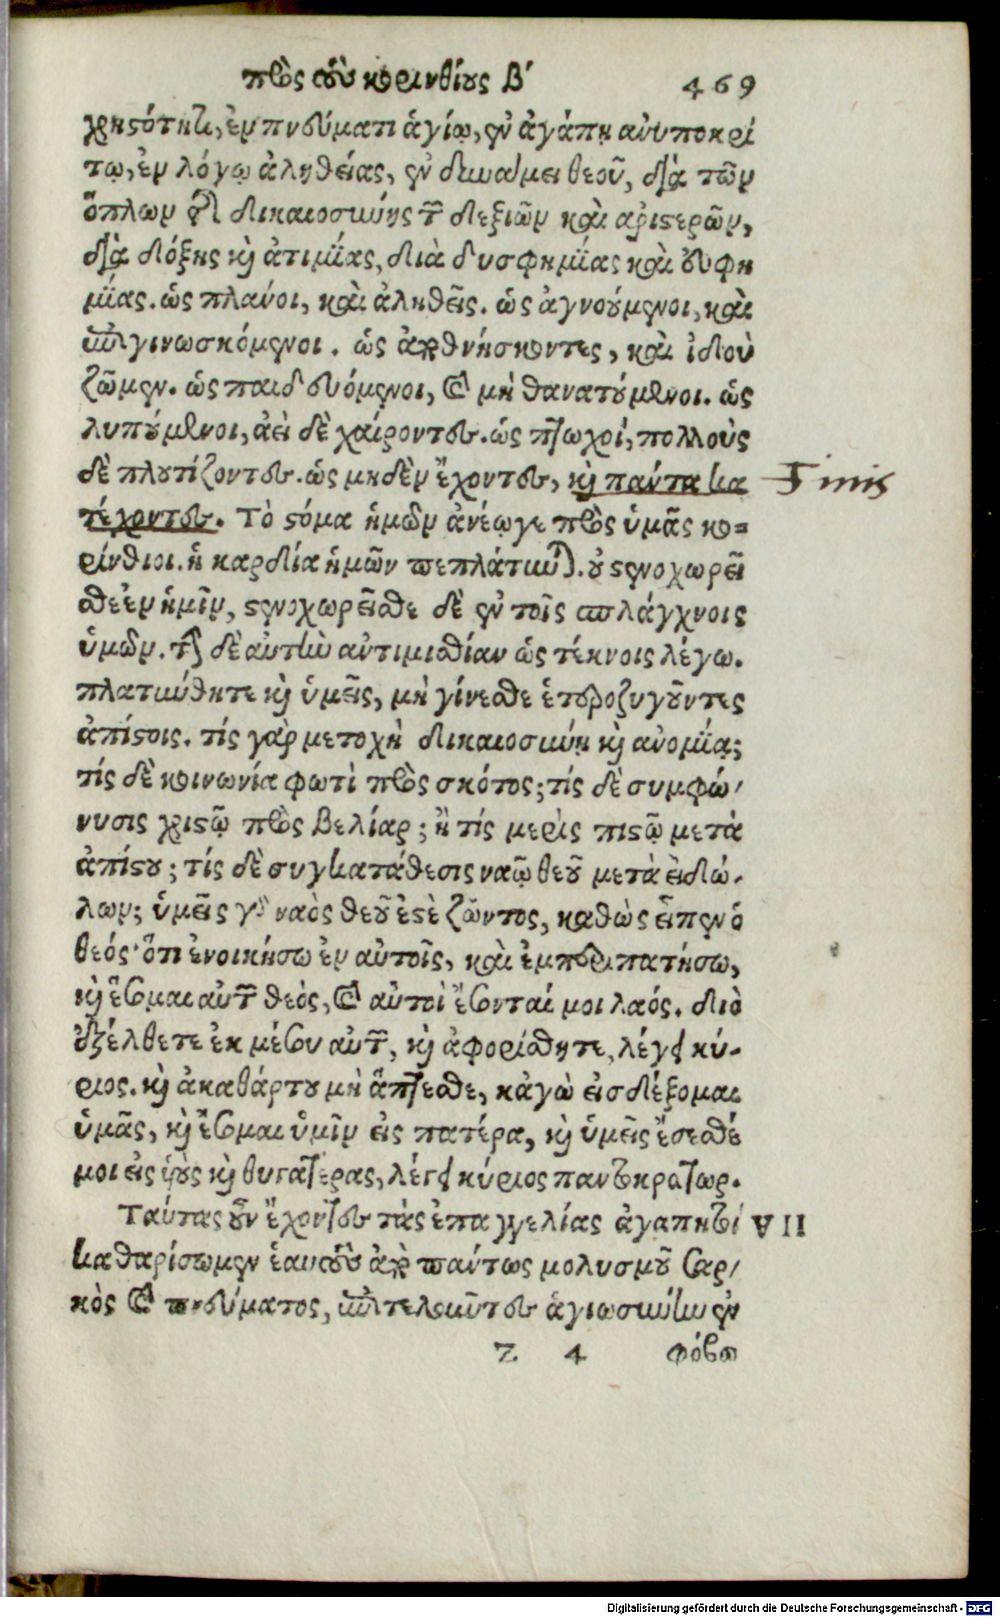 πρὸς τοὺς κορινθίους Β΄ 469
χρηστότητι, ἐν πνεύματι ἁγίῳ, ἐν ἀγάπῃ ἀνυποκρί
τῳ, ἐν λόγῳ ἀληθείας, ἐν δυνάμει θεοῦ, διὰ τῶν
ὅπλων τῆς δικαιοσύνης τῶν δεξιῶν καὶ ἀριστερῶν,
διὰ δόξης καὶ ἀτιμίας, διὰ δυσφημίας καὶ εὐφη
μίας. ὡς πλάνοι, καὶ ἀληθεῖς. ὡς ἀγνοούμενοι, καὶ
ἐπιγινωσκόμενοι. ὡς ἀποθνήσκοντες, καὶ ἰδιοὺ
ζῶμεν. ὡς παιδευόμενοι, καὶ μὴ θανατούμενοι. ὡς
λυπούμενοι, ἀεὶ δὲ χαίροντες. ὡς πτωχοί, πολλοὺς
δὲ πλουτίζοντες. ὡς μηδὲν ἔχοντες, καὶ πάντα κα
Finis
τέχοντες. Τὸ στόμα ἡμῶν ἀνέῳγε πρὸς ὑμᾶς κο-
ρίνθιοι. ἡ καρδία ἡμῶν πεπλάτυνται. οὐ στενοχωρεῖ
σθε ἐν ἡμῖν, στενοχωρεῖσθε δὲ ἐν τοῖς σπλάγχνοις
ὑμῶν. τὴν δὲ αὐτὴν ἀντιμισθίαν ὡς τέκνοις λέγω.
πλατύνθητε καὶ ὑμεῖς, μὴ γίνεσθε ἑτεροζυγοῦντες
ἀπίστοις. τίς γὰρ μετοχὴ δικαιοσύνῃ καὶ ἀνομίᾳ;
τίς δὲ κοινωνία φωτὶ πρὸς σκότος; τίς δὲ συμφώ-
νυσις χριστῷ πρὸς Βελίαρ; ἢ τίς μερὶς πιστῷ μετὰ
ἀπίστου; τίς δὲ συγκατάθεσις ναῷ θεοῦ μετὰ εἰδώ-
λων; ὑμεῖς γὰρ ναὸς θεοῦ ἐστὲ ζῶντος, καθὼς εἶπεν ὁ
θεός· ὅτι ἐνοικήσω ἐν αὐτοῖς, καὶ ἐμπεριπατήσω,
καὶ ἔσομαι αὐτῶν θεὸς, καὶ αὐτοὶ ἔσονταί μοι λαός. διὸ
ἐξέλθετε ἐκ μέσου αὐτῶν, καὶ ἀφορίσθητε, λέγει κύ-
ριος. καὶ ἀκαθάρτου μὴ ἅπτεσθε, κἀγὼ εἰσδέξομαι
ὑμᾶς, καὶ ἔσομαι ὑμῖν εἰς πατέρα, καὶ ὑμεῖς ἔσεσθέ
μοι εἰς υἱοὺς καὶ θυγατέρας, λέγει κύριος παντοκράτωρ.
Ταύτας οὖν ἔχοντες τὰς ἐπαγγελίας ἀγαπητοί VII
καθαρίσωμεν ἑαυτοὺς ἀπὸ πάντως μολυσμοῦ σαρ-
κὸς καὶ πνεύματος, ἐπιτελοῦντες ἁγιωσύνην ἐν
Z 4 φόβῳ
Digitalisierung gefördert durch die Deutsche Forschungsgemeinschaft - DFG